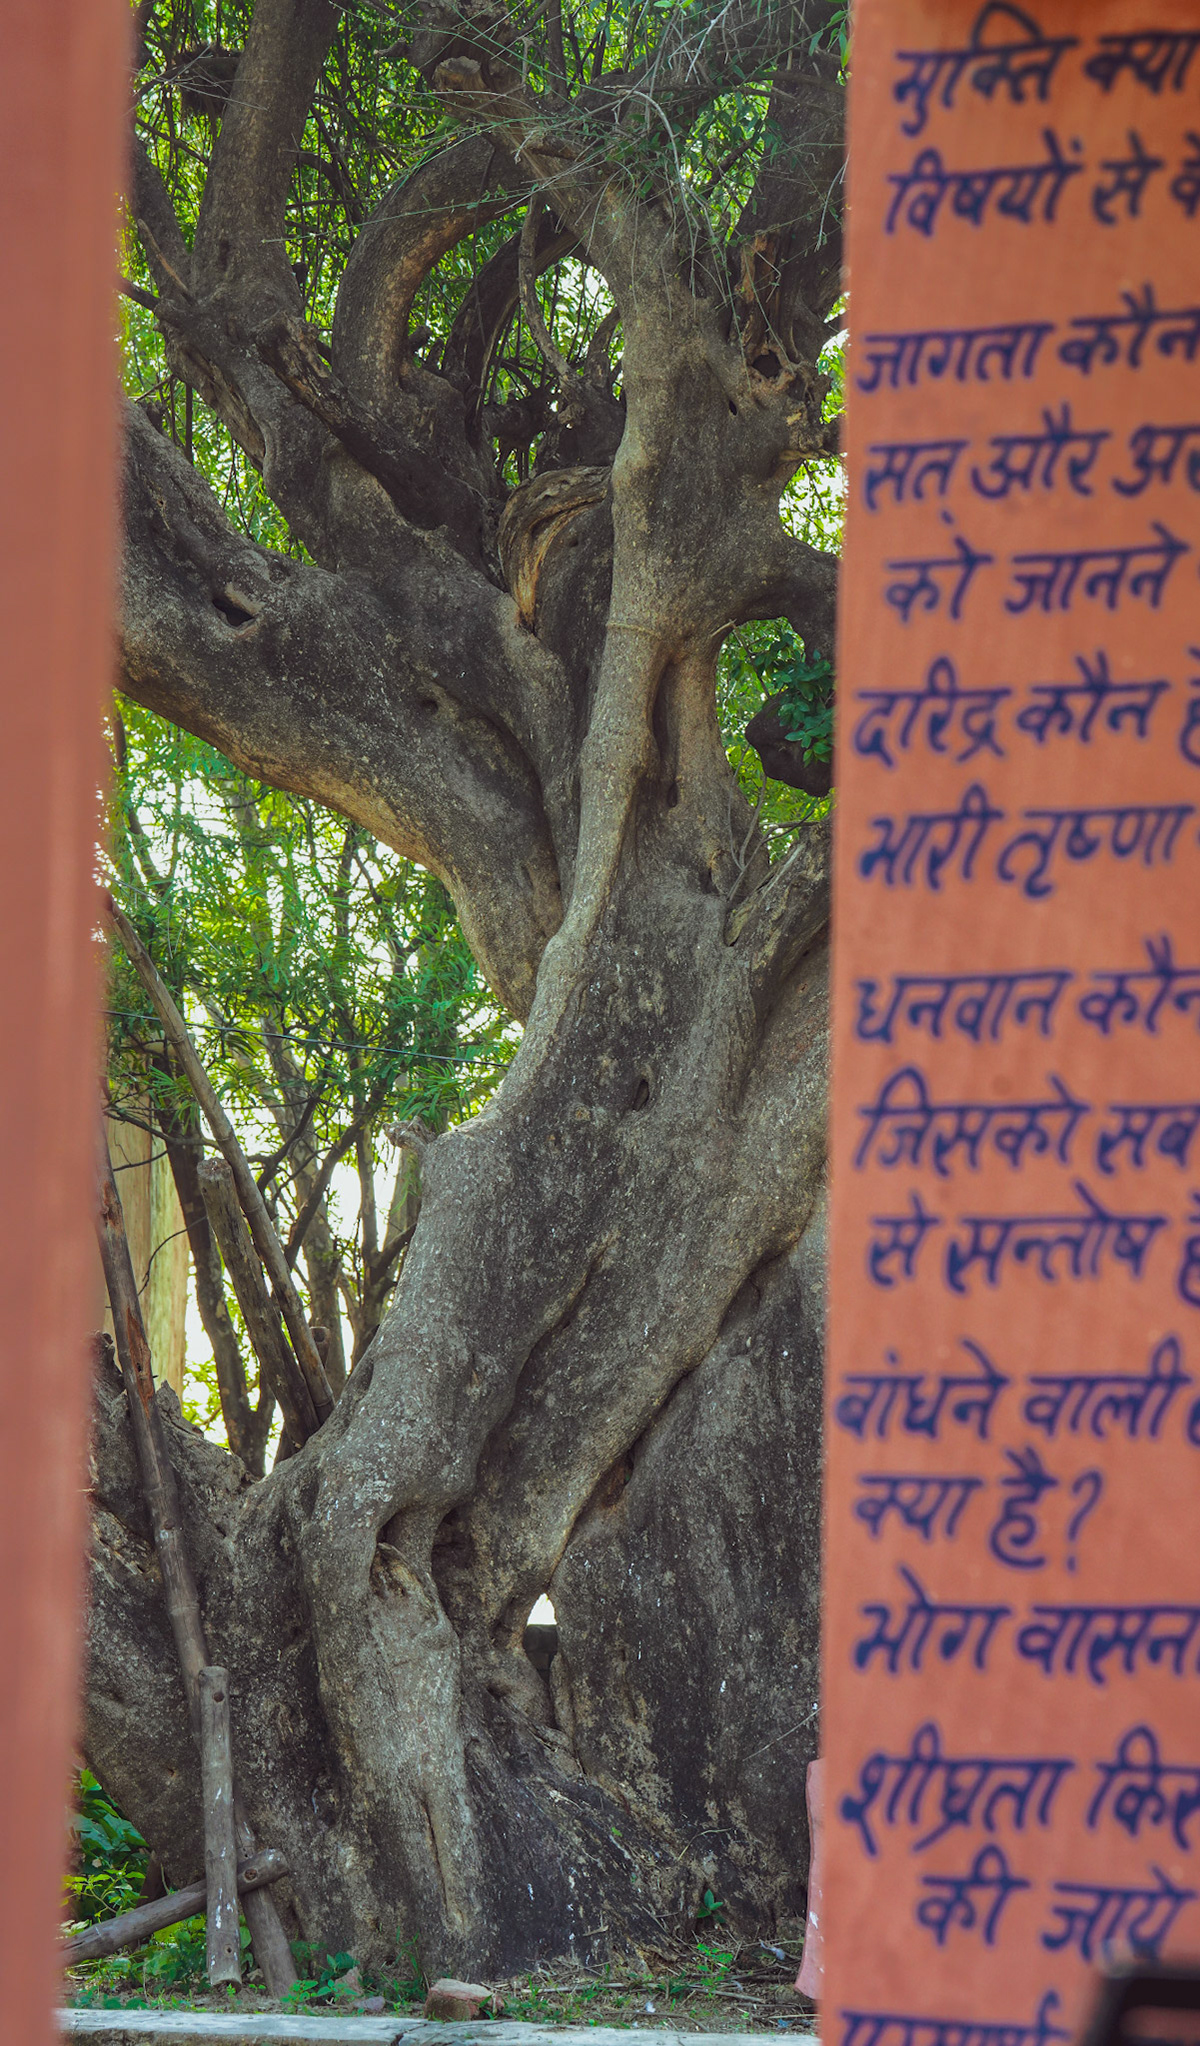 मुक्ति क्या
विषयों से
जागता कौन
सत् और
को जानने
दरिद्र कौन
भारी तृष्णा
धनवान कौन
जिसको सब
से सन्तोष
बांधने वाली
क्या है?
भोग वासना
शीघ्रता
की जाये